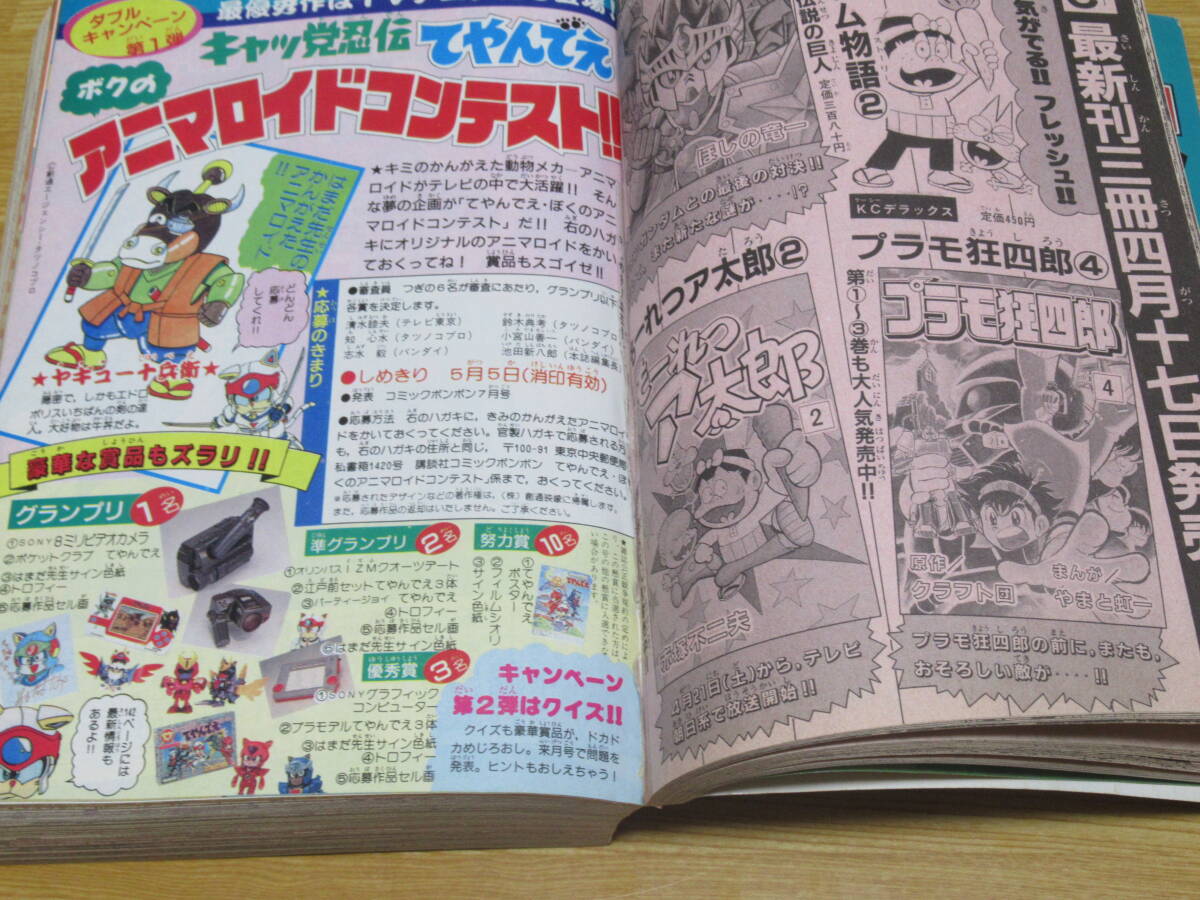 ダブル
キャンペーン
第1弾
キャッ党忍伝てやんでえ
ボクの
アニマロイドコンテスト!!
★キミのかんがえた動物メカ―アニマ
ロイドがテレビの中で大活躍!! そん
な夢の企画が「てやんでえ・ぼくのアニ
マロイドコンテスト」だ!! 右のハガ
キにオリジナルのアニマロイドをかい
ておくってね! 賞品もスゴイゼ!!
はまだ先生の
かんがえた
アニマロイド!!
どんどん
応募
してくれ!!
★ヤキュー十兵衛★
ポリスいちばんの剣の達
人。大好物は牛丼だよ。
★応募のきまり
●審査員 つぎの6名が審査にあたり、グランプリ以下
各賞を決定します。
清水睦夫(テレビ東京) 鈴木典孝(タツノコプロ)
知 心水(タツノコプロ) 小宮山善一(バンダイ)
志水 毅(バンダイ) 池田新八郎(本誌編集長)
●しめきり 5月5日(消印有効)
●発表 コミックボンボン7月号
●応募方法 右のハガキに、きみのかんがえたアニマロイ
ドをかいておくってください。官製ハガキで応募される方
も、右のハガキの住所と同じ、〒100-91 東京中央郵便局
私書箱1420号 講談社コミックボンボン てやんでえ・ぼ
くのアニマロイドコンテスト係まで、おくってください。
※応募されたデザインなどの著作権は、(株)創通映像に帰属します。
また、応募作品の返却はいたしません。ご了承ください。
豪華な賞品もズラリ!!
グランプリ 1名
①SONY8ミリビデオカメラ
②ポケットクラブ てやんでえ
③はまだ先生サイン色紙
④トロフィー
⑤応募作品セル画
準グランプリ 2名
①オリンパスIZMクオーツデート
②江戸前セットてやんでえ3体
③パーティージョイ てやんでえ
④トロフィー
⑤応募作品セル画
⑥はまだ先生サイン色紙
優秀賞 3名
①SONYグラフィック
コンピューター
②プラモデルてやんでえ3体
③はまだ先生サイン色紙
④トロフィー
⑤応募作品セル画
努力賞 10名
キャンペーン
第2弾はクイズ!!
クイズも豪華賞品が、ドカド
カめじろおし。来月号で問題を
発表。ヒントもおしえちゃう!
ページには
最新情報も
あるよ!!
最新刊三冊四月十七日発売
気がでる!! フレッシュ!!
KCデラックス
定価450円
プラモ狂四郎④
第①〜③巻も大人気発売中!!
プラモ狂四郎
4
原作
クラフト団
まんが
やまと虹一
プラモ狂四郎の前に、またも、
おそろしい敵が‥‥!!
ム物語②
伝説の巨人
定価三百八十円
ほしの竜一
ガンダムとの最後の対決!!
また新たな謎が‥‥!?
ーれつア太郎②
もーれつ
ア太郎
2
赤塚不二夫
4月21日(土)から、テレビ
朝日系で放送開始!!